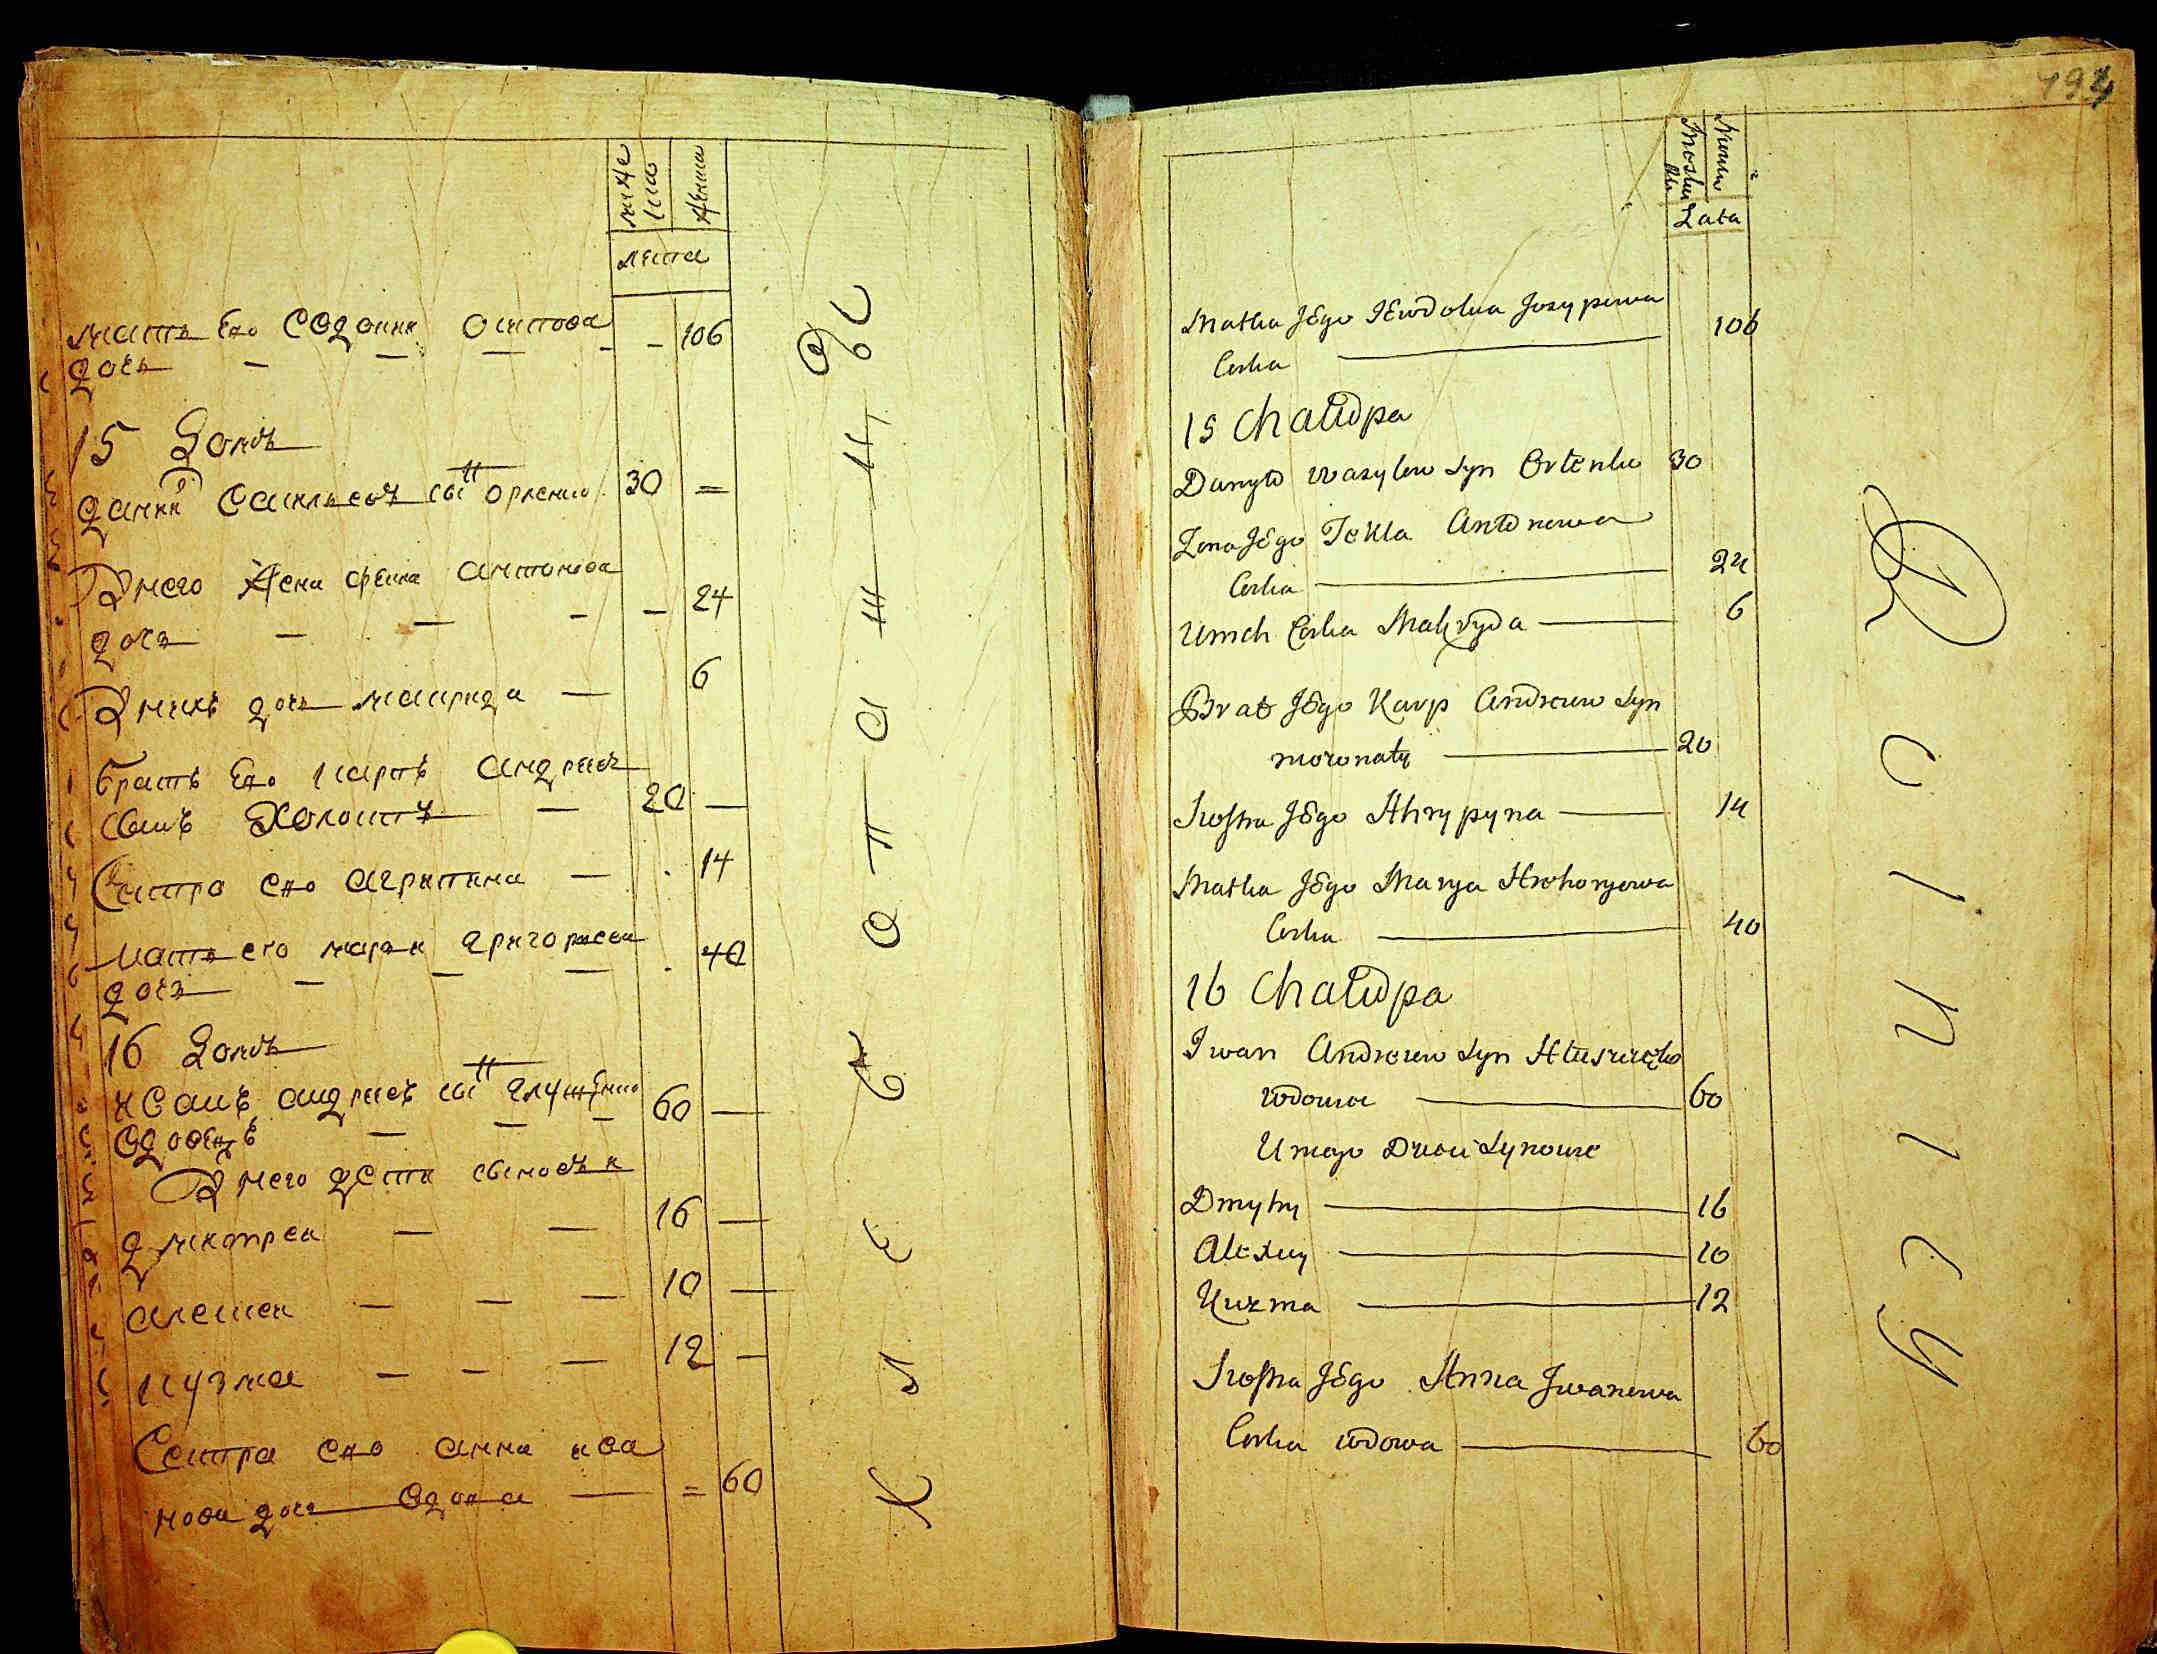 муже
ска
женска
лета
мать Его Евдокия Осипова 106
дочь
15 Домъ
Данил Васильевъ сынъ Орленко 30
У него жена Фекла Антонова
дочь 24
У нихъ дочь Маврида 6
братъ Его Карпъ Андреевъ
сынъ Холостъ 20
Сестра его Агрипина 14
Мать его Мария Григориева
дочь 40
16 Домъ
Иванъ Андреевъ сынъ Глущенко
Вдовецъ 60
У него дети сыновья
Дмитрей 16
Алексей 10
Кузма 12
Сестра его Анна Ива
нова дочь Вдова 60
194
Lata
Matka Jego Iewdokia Jozypowa
Corka 106
15 Chałupa
Danyło Wasylow Syn Orlenko 30
Zona Jego Tekla Antonowa
Corka 24
U nich Corka Makryda 6
Brat Jego Karp Andreiew Syn
nieżonaty 20
Siostra Jego Ahrypyna 14
Matka Jego Marya Hrehoryowa
Corka 40
16 Chałupa
Iwan Andreiew Syn Hłuszczenko
wdowiec 60
U niego Dwóch Synowie
Dmytry 16
Alexey 10
Kuzma 12
Siostra Jego Anna Iwanowa
Corka wdowa 60